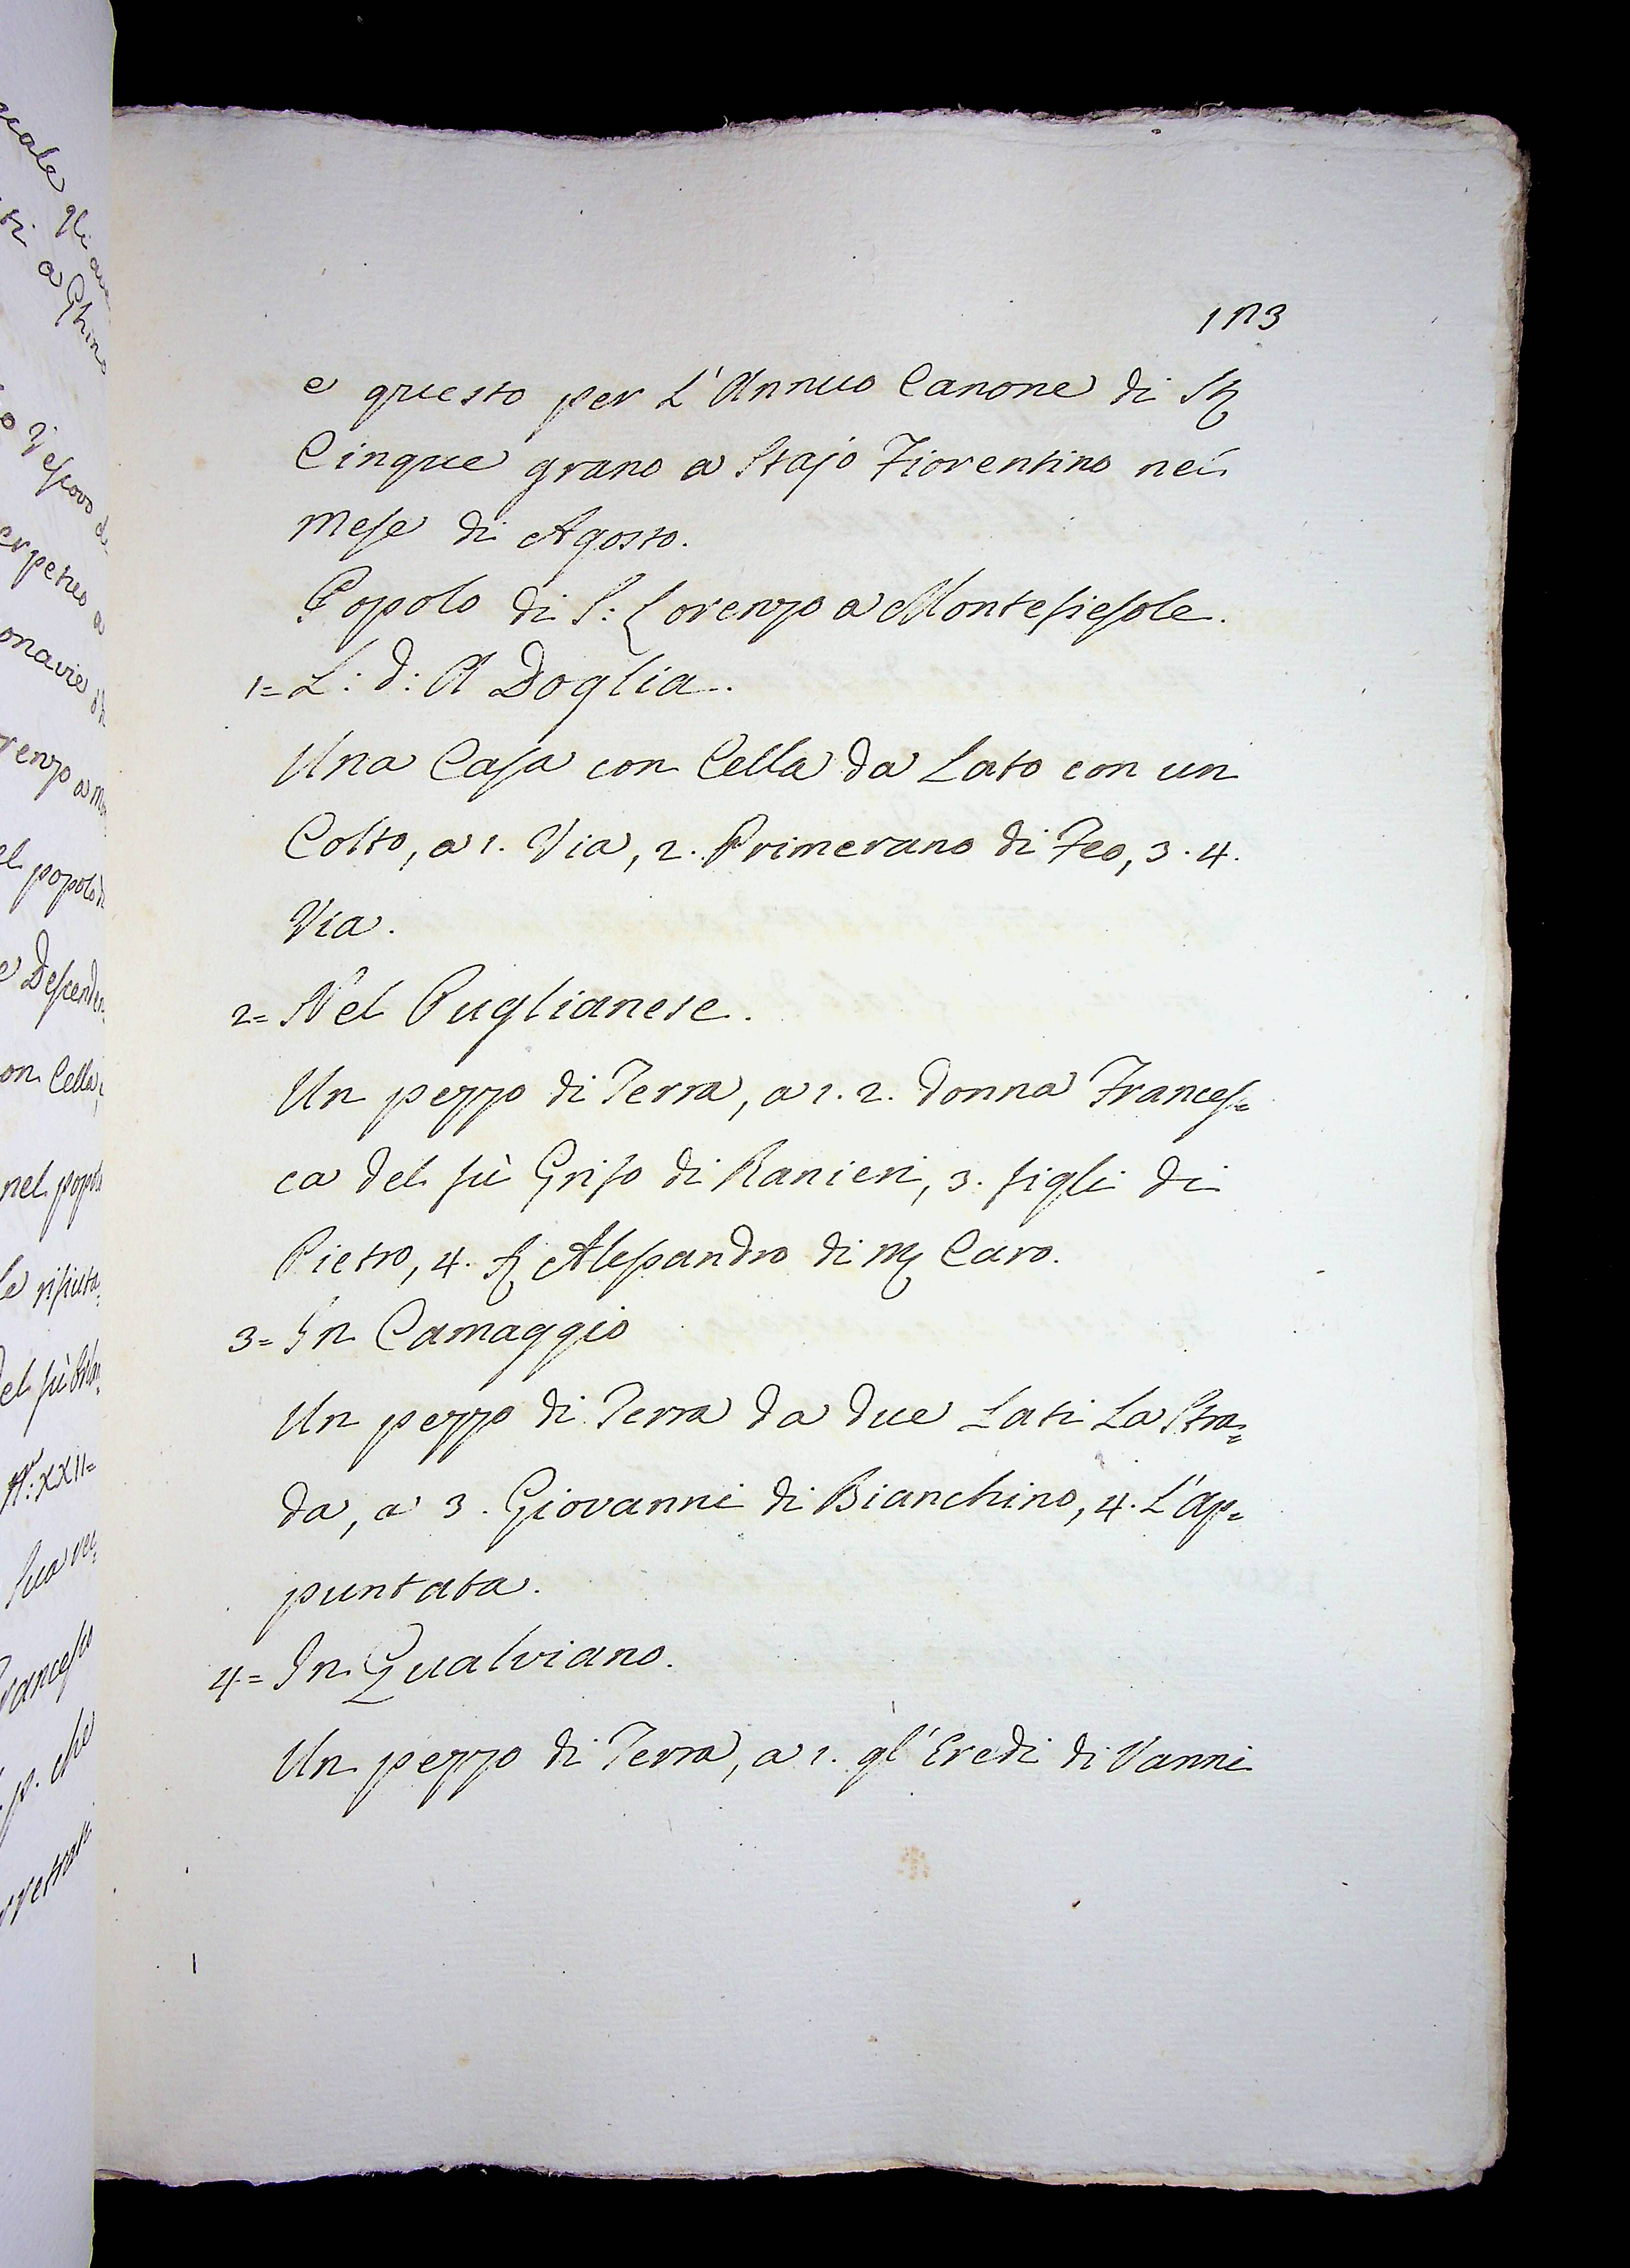 173
e questo per L'Annuo Canone di St
Cinque grano a Stajo Fiorentino nel
Mese di Agosto.
Popolo di S: Lorenzo a Montefiesole.
1= L: d: A Doglia.
Una Casa con Cella da Lato con un
Colto, a 1. Via, 2. Primerano di Feo, 3. 4.
Via.
2= Nel Puglianese.
Un pezzo di Terra, a 1. 2. Donna Frances=
ca del fù Grifo di Ranieri, 3. figli di
Pietro, 4. Alessandro di M Caro.
3= In Camaggio
Un pezzo di Terra da due Lati La Stra=
da, a 3. Giovanni di Bianchino, 4. L'ap=
puntata.
4= In Gualviano.
Un pezzo di Terra, a 1. gl' Eredi di Vanni